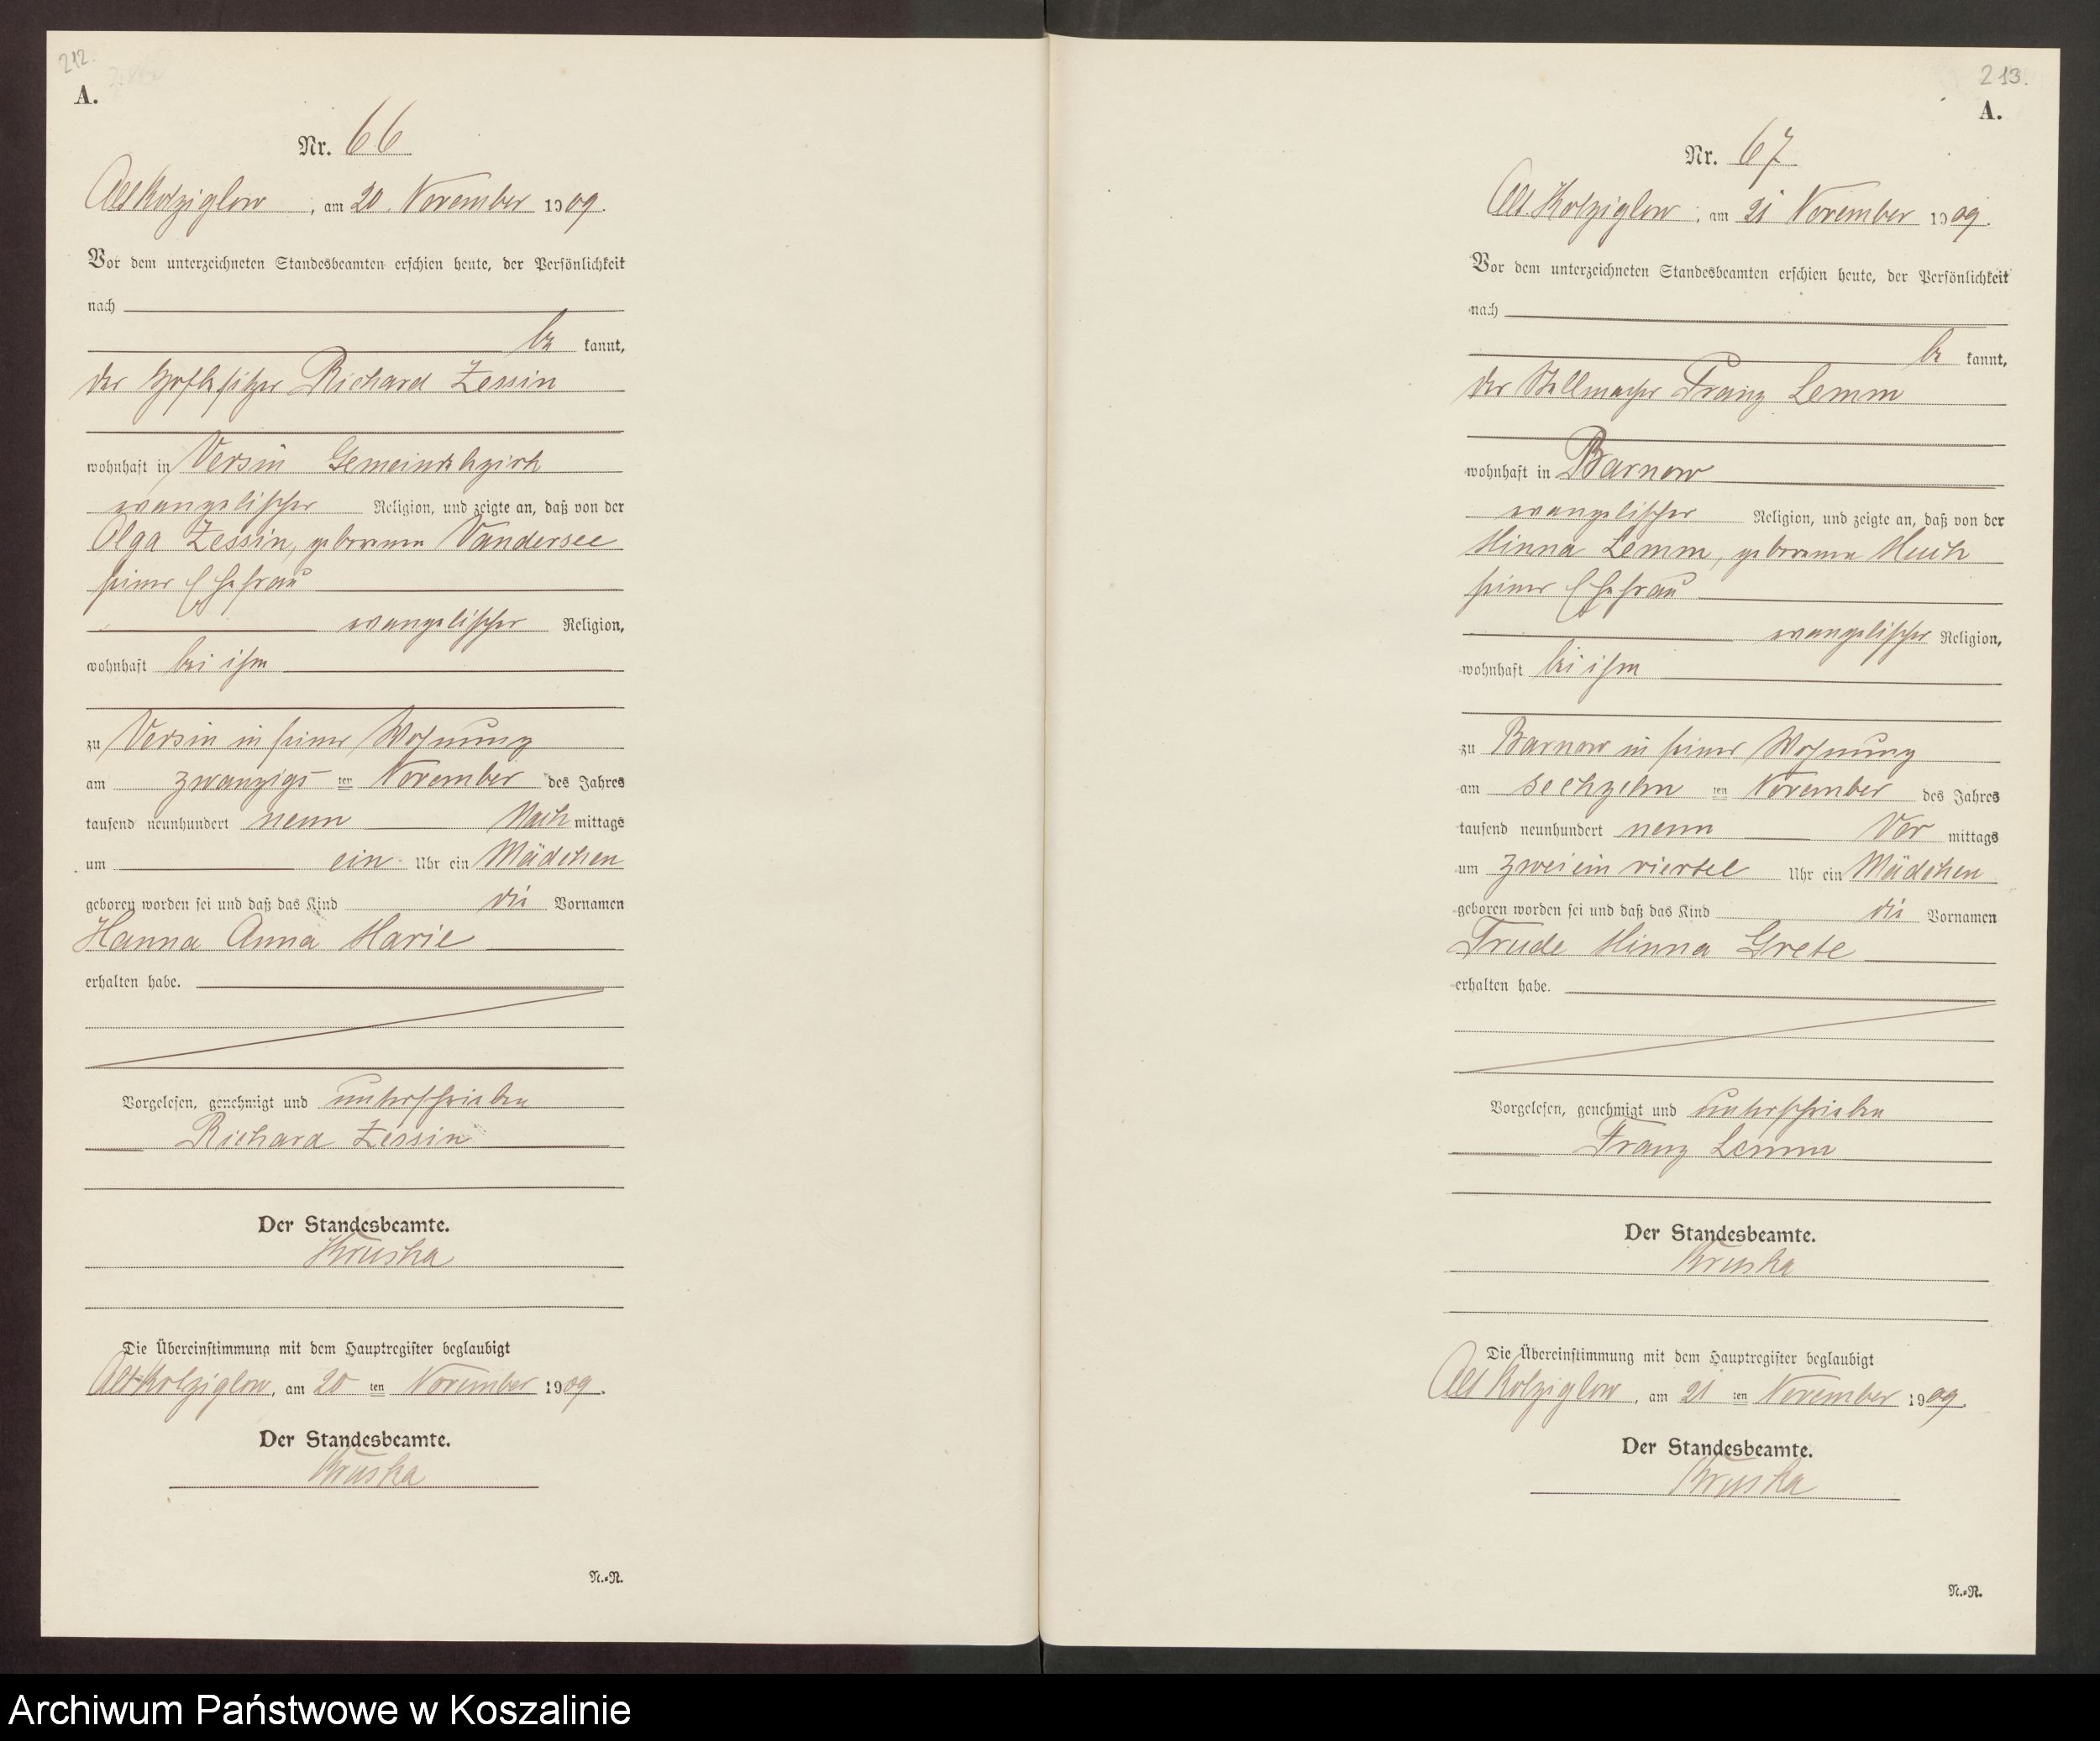 212.
A.
Nr. 66
Alt Kolziglow, am 20. November 1909.
Vor dem unterzeichneten Standesbeamten erschien heute, der Persönlichkeit
nach
be kannt,
der Hofbesitzer Richard Zessin
wohnhaft in Versin Gemeindebezirk
evangelischer Religion, und zeigte an, daß von der
Olga Zessin, geborenen Vandersee
seiner Ehefrau
evangelischer Religion,
wohnhaft bei ihm
zu Versin in seiner Wohnung
am zwanzigs ten November des Jahres
tausend neunhundert neun Nach mittags
um ein Uhr ein Mädchen
geboren worden sei und daß das Kind die Vornamen
Hanna Anna Marie
erhalten habe.
Vorgelesen, genehmigt und unterschrieben
Richard Zessin
Der Standesbeamte.
Kruska
Die Übereinstimmung mit dem Hauptregister beglaubigt
Alt-Kolziglow, am 20 ten November 1909.
Der Standesbeamte.
Kruska
N.=R.
213.
A.
Nr. 67
Alt Kolziglow, am 21 November 1909.
Vor dem unterzeichneten Standesbeamten erschien heute, der Persönlichkeit
nach
be kannt,
der Stellmacher Franz Lemm
wohnhaft in Barnow
evangelischer Religion, und zeigte an, daß von der
Minna Lemm, geborenen
seiner Ehefrau
evangelischer Religion,
wohnhaft bei ihm
zu Barnow in seiner Wohnung
am sechzehn ten November des Jahres
tausend neunhundert neun Vor mittags
um zweiein viertel Uhr ein Mädchen
geboren worden sei und daß das Kind die Vornamen
Trude Minna Grete
erhalten habe.
Vorgelesen, genehmigt und unterschrieben
Franz Lemm
Der Standesbeamte.
Kruska
Die Übereinstimmung mit dem Hauptregister beglaubigt
Alt Kolziglow, am 21 ten November 1909.
Der Standesbeamte.
Kruska
N.=R.
Archiwum Państwowe w Koszalinie